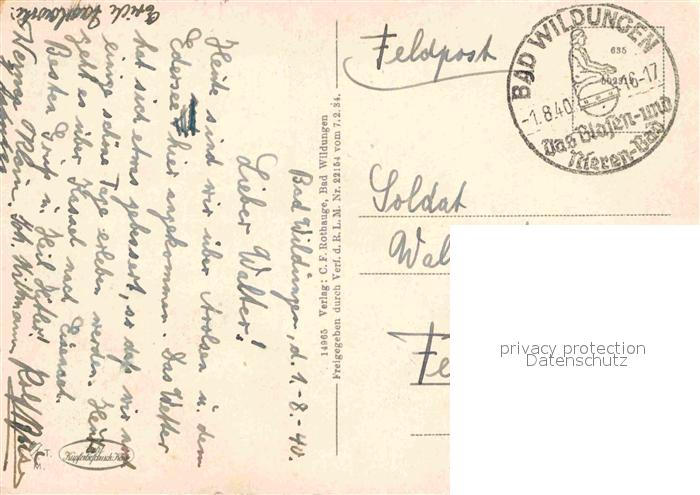 Bad Wildungen, d. 1.-8.-40.
Lieber Walter!
Heute sind wir über Arolsen u. dem
Edersee hier angekommen. Das Wetter
hat sich etwas gebessert, so daß wir noch
einige schöne Tage erleben werden. Heute
geht es über Kassel nach Eisenach.
Besten Gruß u. Heil Hitler!
Rolf
Werner Wittmann
Erich
14965 Verlag: C. F. Rothauge, Bad Wildungen
Freigegeben durch Verf. d. R. L. M. Nr. 22154 vom 7. 2. 34.
Feldpost
BAD WILDUNGEN
635
-1.8.40
16-17
Das Blasen- und
Nieren-Bad
Soldat
Wal
Fe
privacy protection
Datenschutz